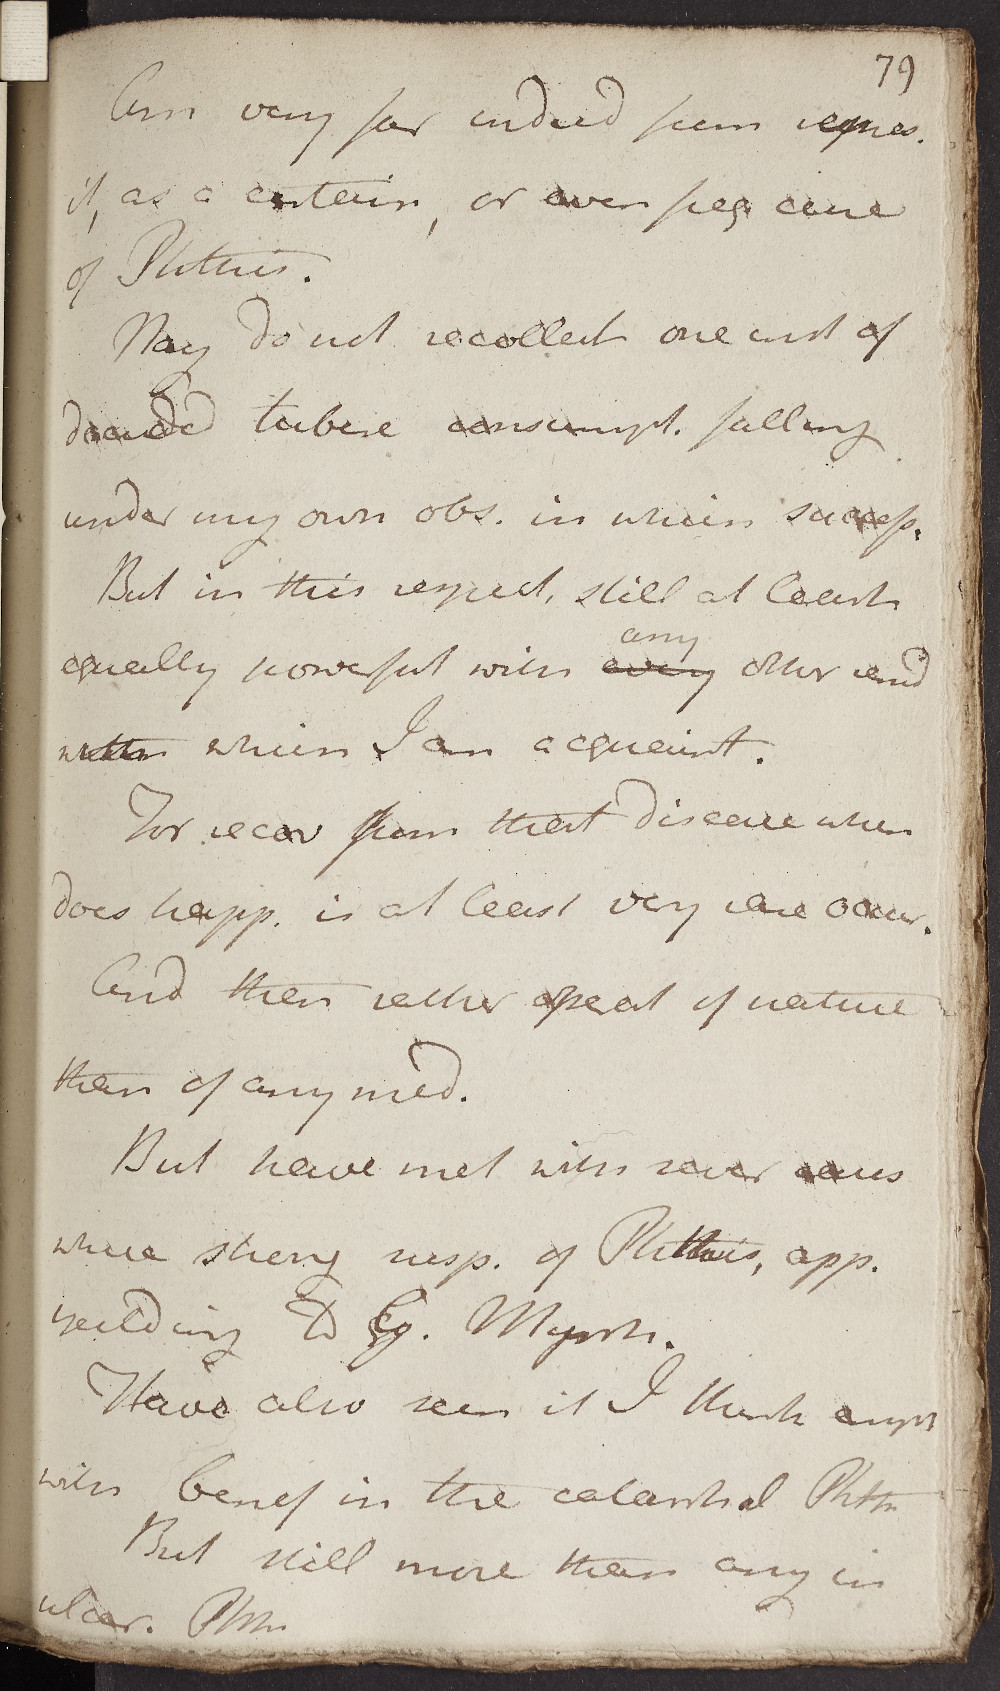 79
Am very far indeed from repres.
it, as a certain, or even freq cure
of Phthisis.
Nay do not recollect one inst of
decided tuberc consumpt. falling
under my own obs. in which success.
But in this respect, still at least
any
equally powerful with every other remd
with which I am acquaint.
For recov from that disease when
does happ. is at least very rare occur.
And then rather operat of nature
than of any med.
But have met with sever cases
where strong susp. of Phthisis, app.
yeilding to Gg. Myrrh.
Have also seen it I think empl
with benef in the catarrhal Phth
But still more than any in
ulcer. Phth